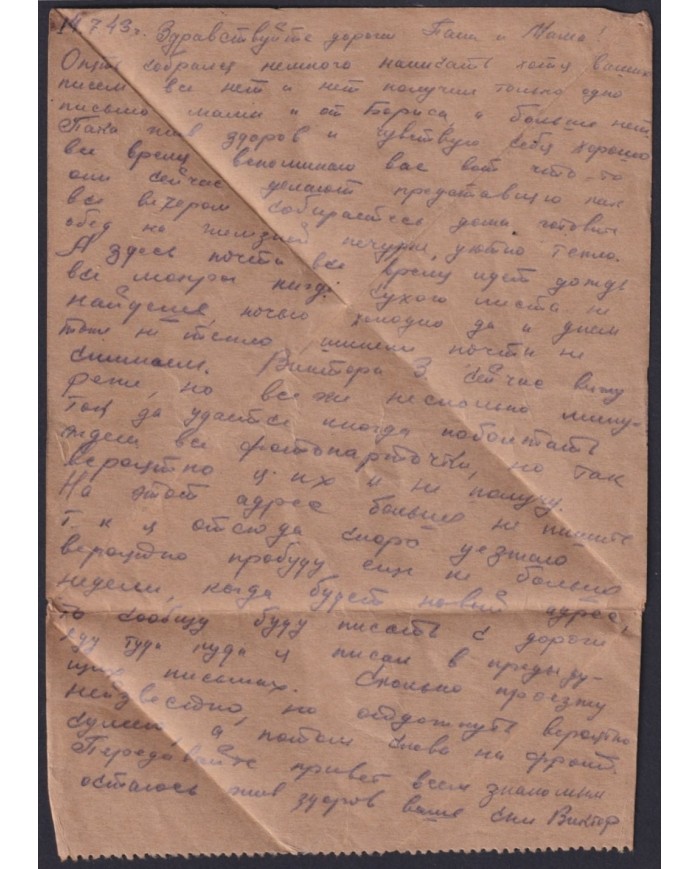 14.7.43 г. Здравствуйте дороги Папа и Мама!
Опять собрался немного написать хотя ваших
писем все нет и нет получил только одно
письмо мамы и от Бориса, и больше нет
Пока жив здоров и чувствую себя хорошо
все время вспоминаю вас вот что-то
они сейчас делают представляю как
все вечером собираетесь дома готовить
обед на железной печурке, уютно тепло.
А здесь почти все время идет дождь
все мокры нигде сухого места не
найдешь, ночью холодно да и днем
тоже не тепло, шинели почти не
снимаем. Виктора З сейчас вижу
реже, но все же несколько мину-
ток да удается иногда поболтать
ждем все фотокарточки, но так
вероятно я их и не получу.
На этот адрес больше не пишите
т. к я отсюда скоро уезжаю
вероятно пробуду еще не больше
недели, когда будет новый адрес,
то сообщу буду писать с дороги
еду туда куда я писал в преды ду-
щих письмах. Сколько проезжу
неизвестно, но отдохнуть вероятно
сумею, а потом снова на фронт.
Передавайте привет всем знакомым
остаюсь жив здоров ваш сын Виктор